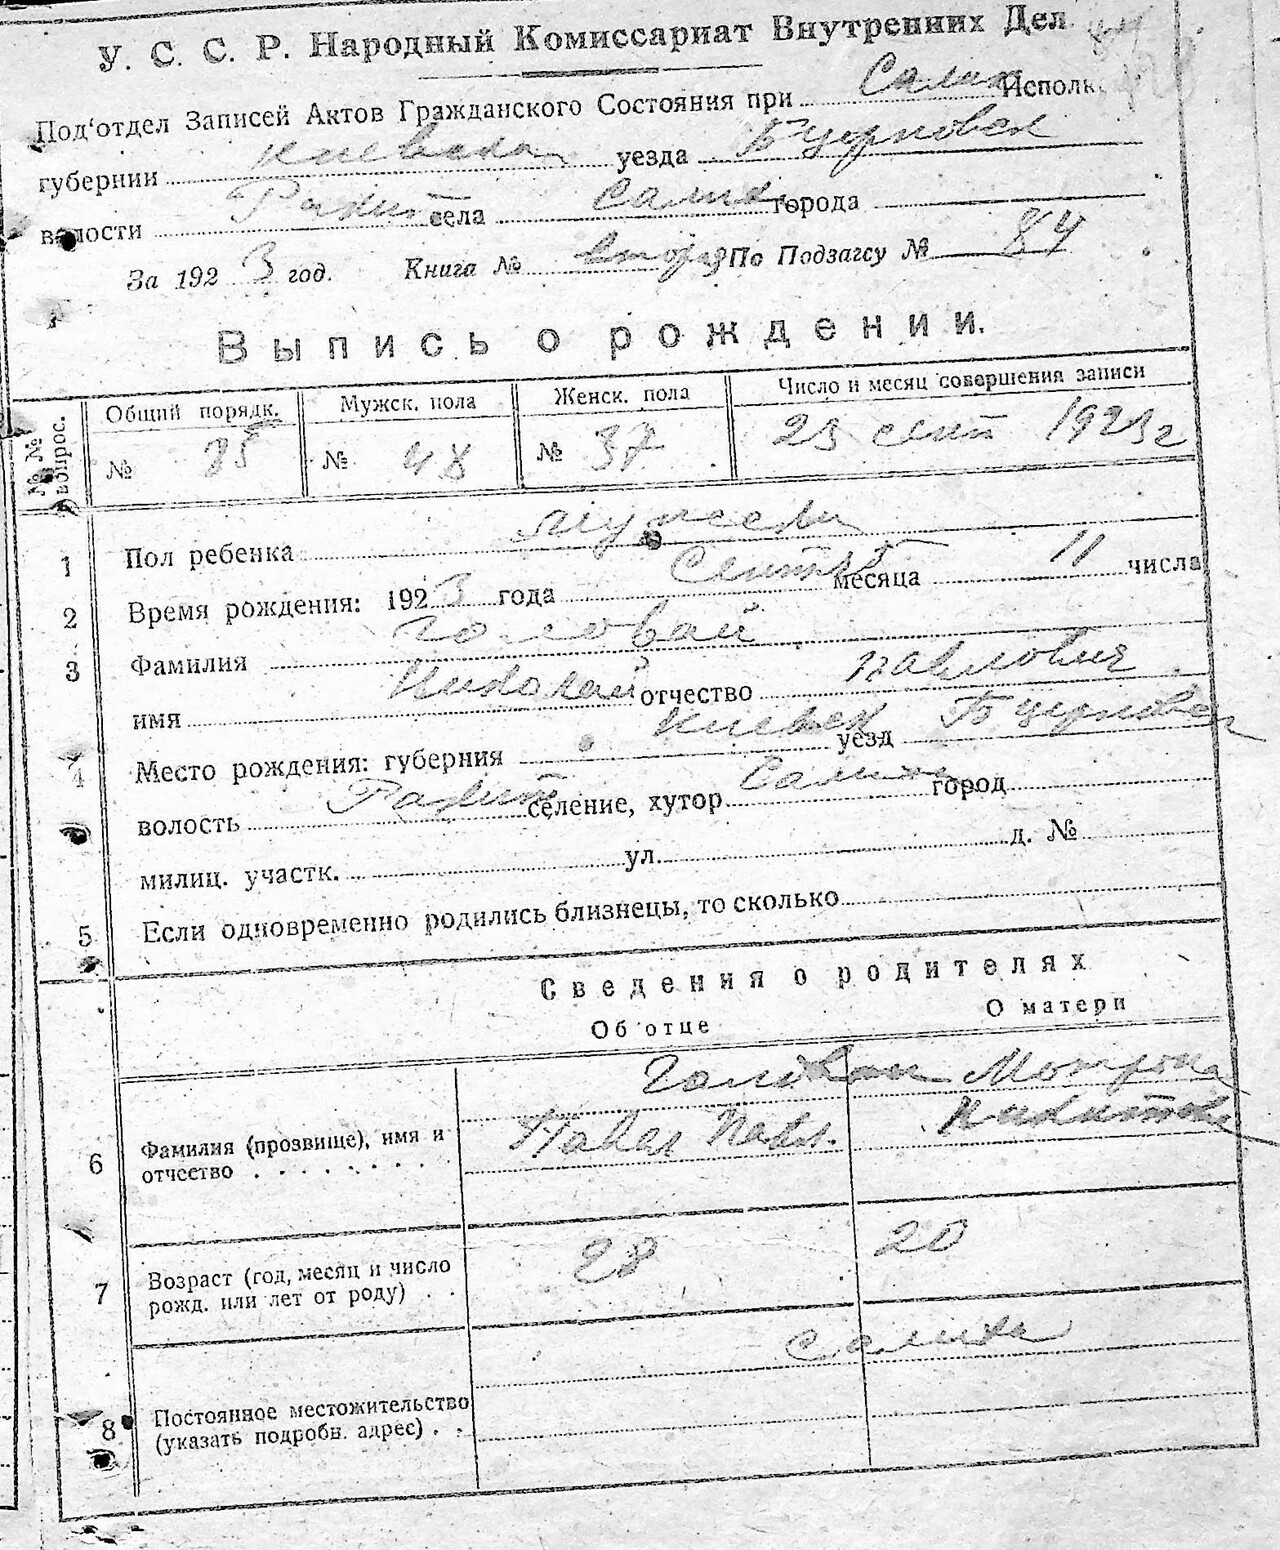 У. С. С. Р. Народный Комиссариат Внутренних Дел
Под'отдел Записей Актов Гражданского Состояния при Салих Исполк
губернии Киевска уезда Б церковск
волости Ракит села Салиха города
За 1923 год. Книга № вторя По Подзагсу № 84
Выпись о рождении.
№ № вопрос. Общий порядк. Мужск. пола Женск. пола Число и месяц совершения записи
№ 85 № 48 № 37 23 сент 1923 г
1 Пол ребенка мужска
2 Время рождения: 1923 года Сентяб месяца 11 числа
3 Фамилия
имя Николай отчество Павлович
4 Место рождения: губерния Киевск уезд Б церковск
волость Ракит селение, хутор Салиха город
милиц. участк. ул. д. №
5 Если одновременно родились близнецы, то сколько
Сведения о родителях
Об отце О матери
Мотрона
6 Фамилия (прозвище), имя и
отчество . . . . . . . . Павел Павл.
7 Возраст (год, месяц и число
рожд. или лет от роду) . . 28 20
Салиха
8 Постоянное местожительство
(указать подробн. адрес) . .